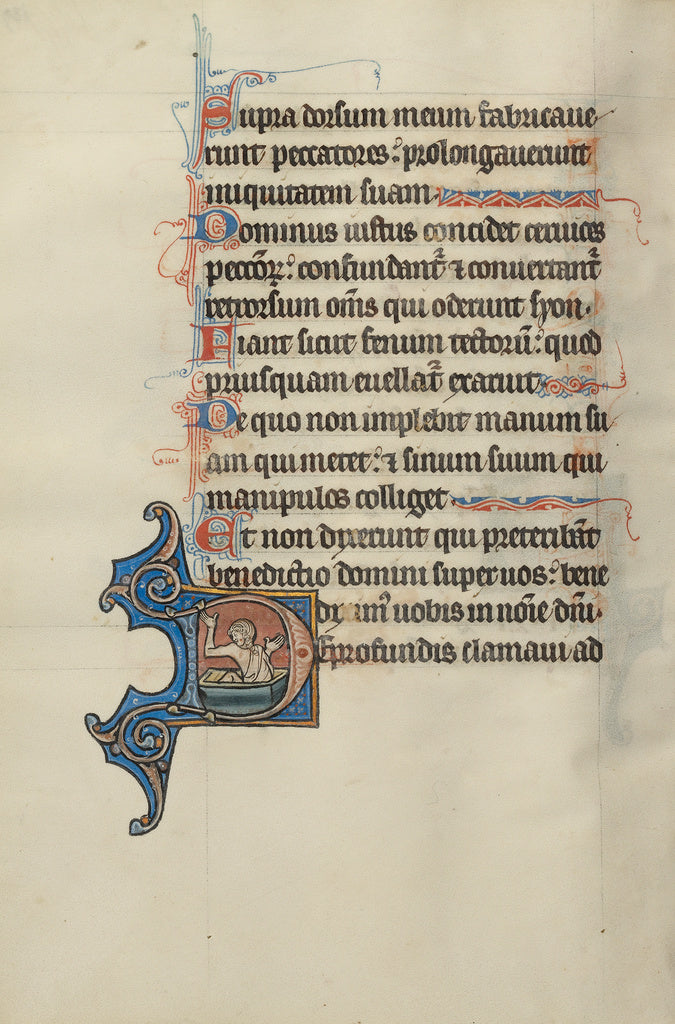 Supra dorsum meum fabricaue
runt peccatores: prolongauerunt
iniquitatem suam.
Dominus iustus concidet ceruices
peccõꝝ: confundantᷣ ⁊ conuertantᷣ
retrorsum om̃s qui oderunt syon.
Fiant sicut fenum tectorũ: quod
priusquam euellatᷣ exaruit.
De quo non implebit manum su
am qui metet: ⁊ sinum suum qui
manipulos colliget.
Et non dixerunt qui preteribãt
benedictio domini super uos: bene
diximꝰ uobis in noĩe dñi.
De profundis clamaui ad